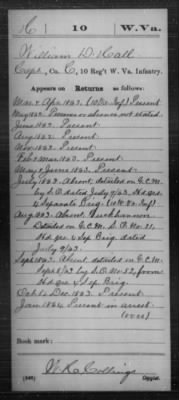 H | 10 | W. Va.
William D. Hall
Capt., Co. C, 10 Reg't W. Va. Infantry.
Appears on Returns as follows:
Mar. & Apr. 1863. (10 Va. Inf.) Present
May 1862. Presence or absence not stated
June 1862. Present.
Aug. 1862. Present.
Nov. 1862. Present.
Feb. & Mar. 1863. Present.
May & June 1863. Present.
July 1863. Absent. Detailed on G.C.M.
by S.O. dated July 9/63. Hd. qrs.
4 Separate Brig. (10 W. Va. Inf.)
Aug. 1863. Absent. Buckhannon
Detailed on G.C.M. S.O. No. 11,
Hd. qrs. 4 Sep. Brig. dated
July 9/63.
Sept. 1863. Absent. detailed on G.C.M.
Sept. /63 by S.O. No. 52, from
Hd. qrs. 4 Sep. Brig.
Oct. to Dec. 1863. Present.
Jan. 1864. Present in arrest.
(over)
Book mark:
(546)
Copyist.